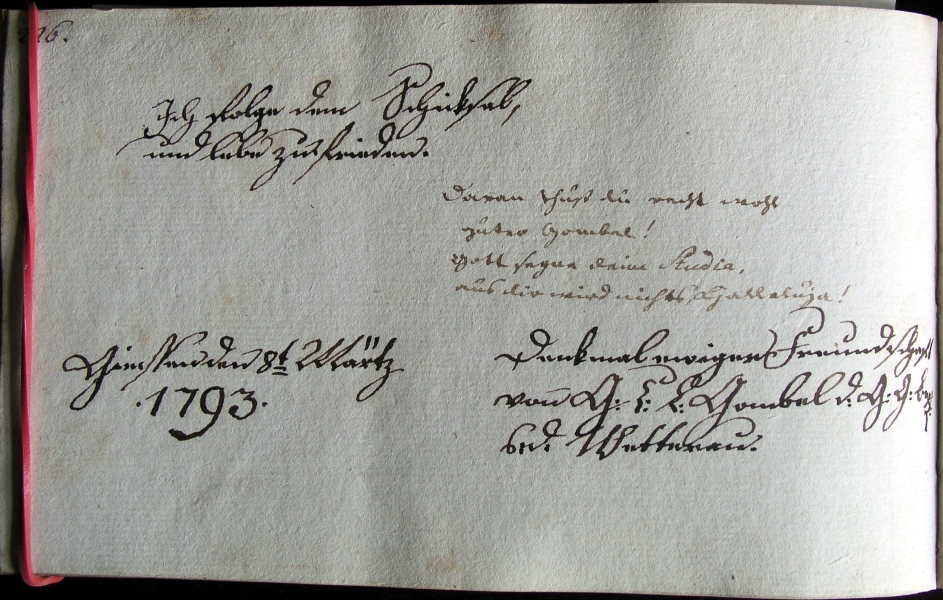 226.
Ich folge dem Schicksal,
und lebe zufrieden.
Daran thust du recht wohl
guter Gombel!
Gott segne deine Studia,
aus dir wird nichts Halleluja!
Giessen den 8t März
·1793·
Denkmal ewiger Freundschaft
von G: L: L: Gombel d: G: G:
Wetterau.